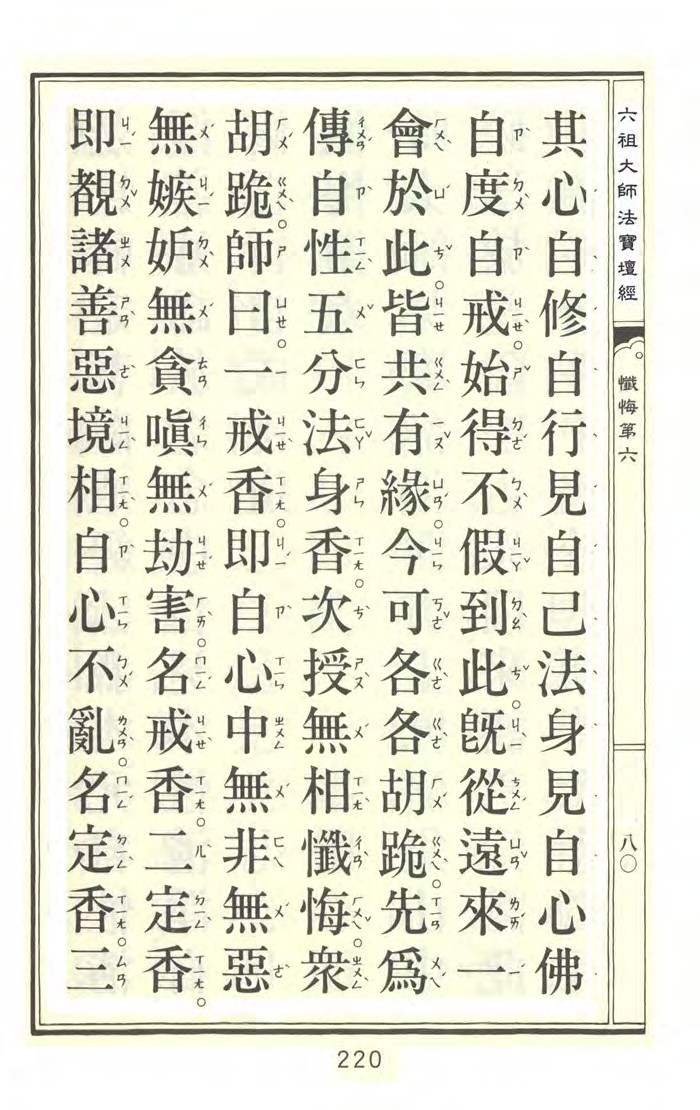 六祖大師法寶壇經
懺悔第六
八〇
其心自修自行見自己法身見自心佛
自度自戒。始得不假到此。旣從遠來一
會於此。皆共有緣。今可各各胡跪。先爲
傳自性五分法身香。次授無相懺悔。衆
胡跪。師曰。一戒香。即自心中無非無惡
無嫉妒無貪嗔無劫害。名戒香。二定香。
即覩諸善惡境相。自心不亂。名定香。三
220